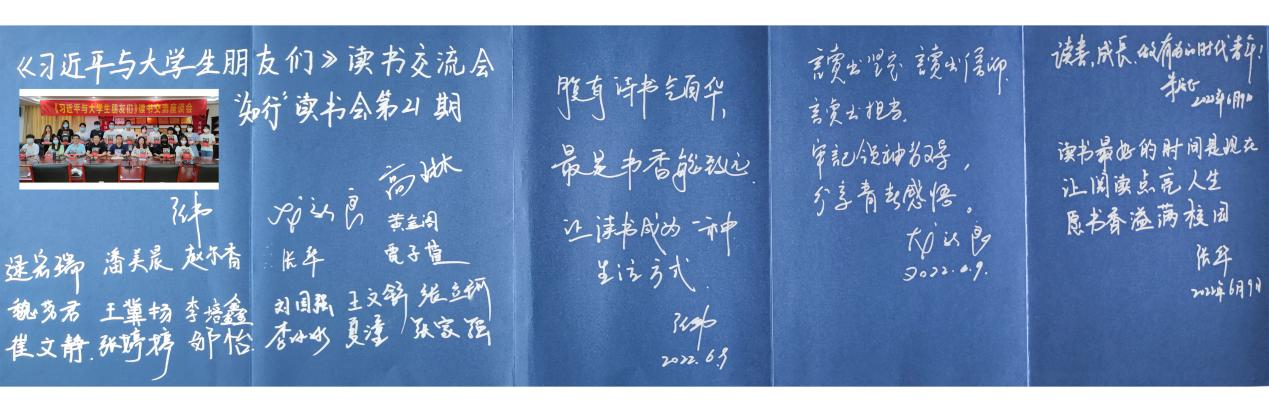 《习近平与大学生朋友们》读书交流会
"知行"读书会第21期
《习近平与大学生朋友们》读书交流座谈会
高琳
黄金阁
张华
逯宏瑞 潘美晨 赵尔香
魏艺君 王冀杨 李培鑫 刘国强 王文舒
崔文静 张婷婷 邹怡 李冰冰 夏潼 张家强
腹有诗书气自华，
最是书香能致远
让读书成为一种
生活方式
2022.6.9
讀出坚定 讀出信仰
讀出担当。
牢記领袖教导，
分享青春感悟。
2022.6.9.
读书，成长，做有为的时代青年！
2022年6月9日
读书最好的时间是现在
让阅读点亮人生
愿书香溢满校园
张华
2022年6月9日